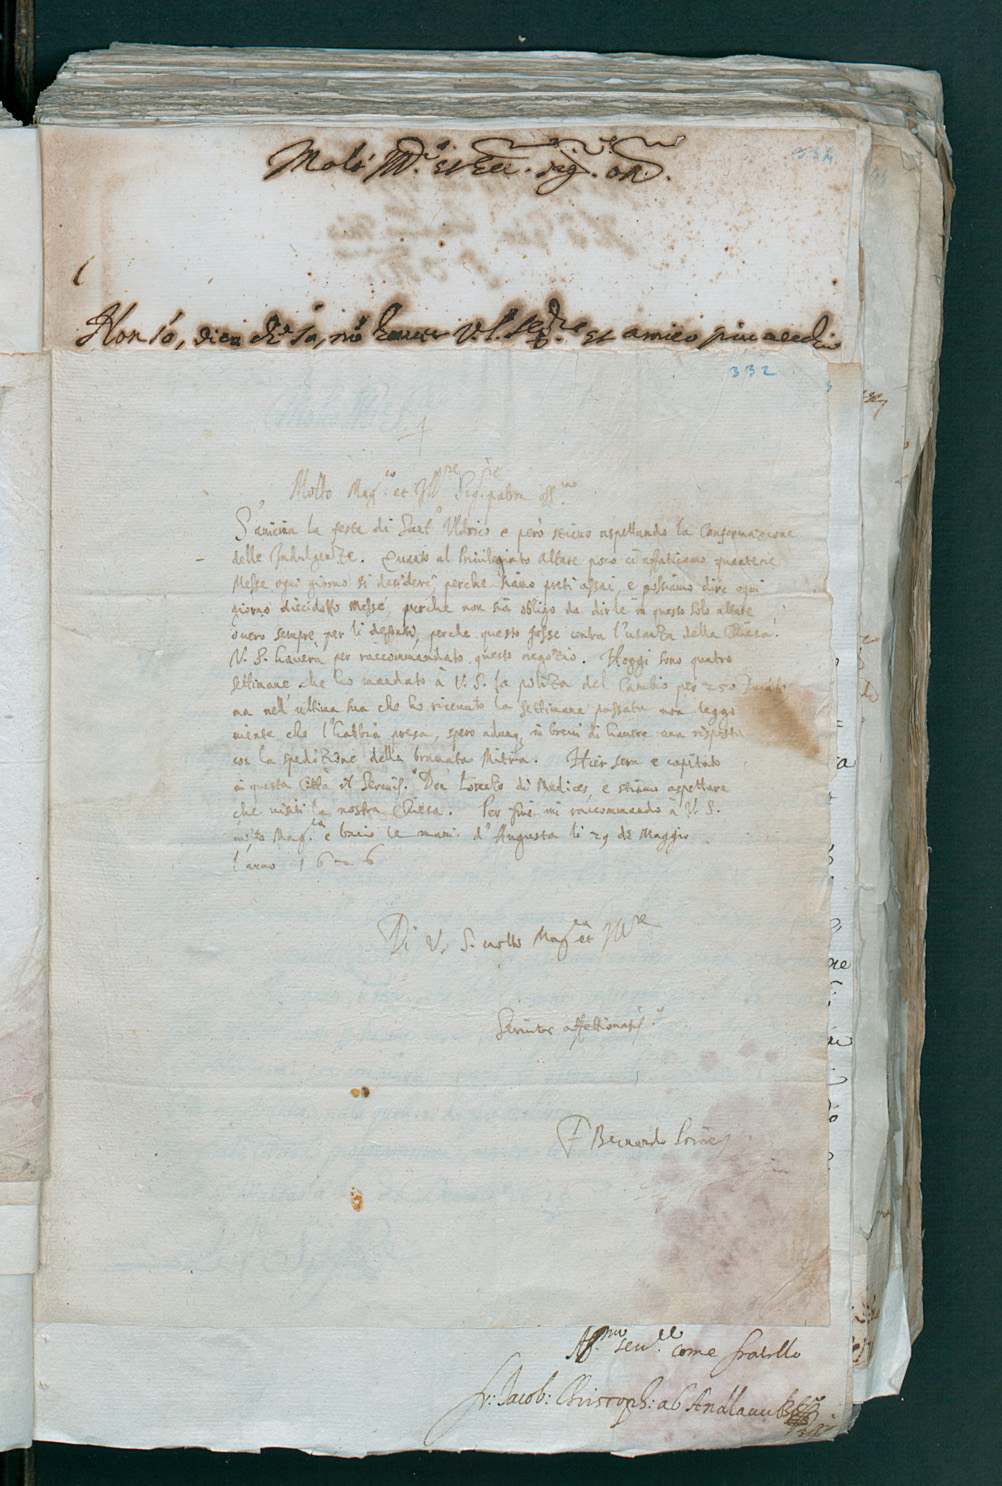 334
Molto Mag.co et Ecc. sig. oss.
Non só, dico che sá, nó hauer V.S. ser.re et amico piu uecchio
332
Molto Mag.co et Ill.re Sig.re patron oss.mo
S'auicina la festa di Sant' Uldrico e però stiamo aspettando la Confermatione
delle Indulgenze. Quanto al Priuilegiato altare poco ci affaticamo quante
Messe ogni giorno si desideri perche hauemo preti assai, e possiamo dire ogni
giorno diecidotto Messe, perche non sia obligo da dirle in questo solo altare,
ouero sempre per li defonti, perche questo fosse contra l'usanza della Chiesa.
V. S. hauerà per raccommandato questo negotio. Hoggi sono quatro
settimane che ho mandato à V. S. la poliza del Cambio per 250 Ducati
ma nell' ultima sua che ho riceuuto la settimana passata non leggo
niente che l'habbia presa, spero adunq. in breui di hauere una risposta
con la speditione della bramata Mitria. Hier sera e capitato
in questa Città il Sereniss.o Don Lorenzo di Medices, e stiamo aspettare
che uisiti la nostra Chiesa. Per fine mi raccommando à V. S.
molto Mag.ca e bacio le mani d'Augusta li 29 de Maggio
l'anno 1626
Di V. S. molto Mag.ca et Ill.re
Seruitor affettionatiss.o
F Bernardo
Aff.mo seu.re come fratello
fr: Jacob: Christoph: ab Andlauu